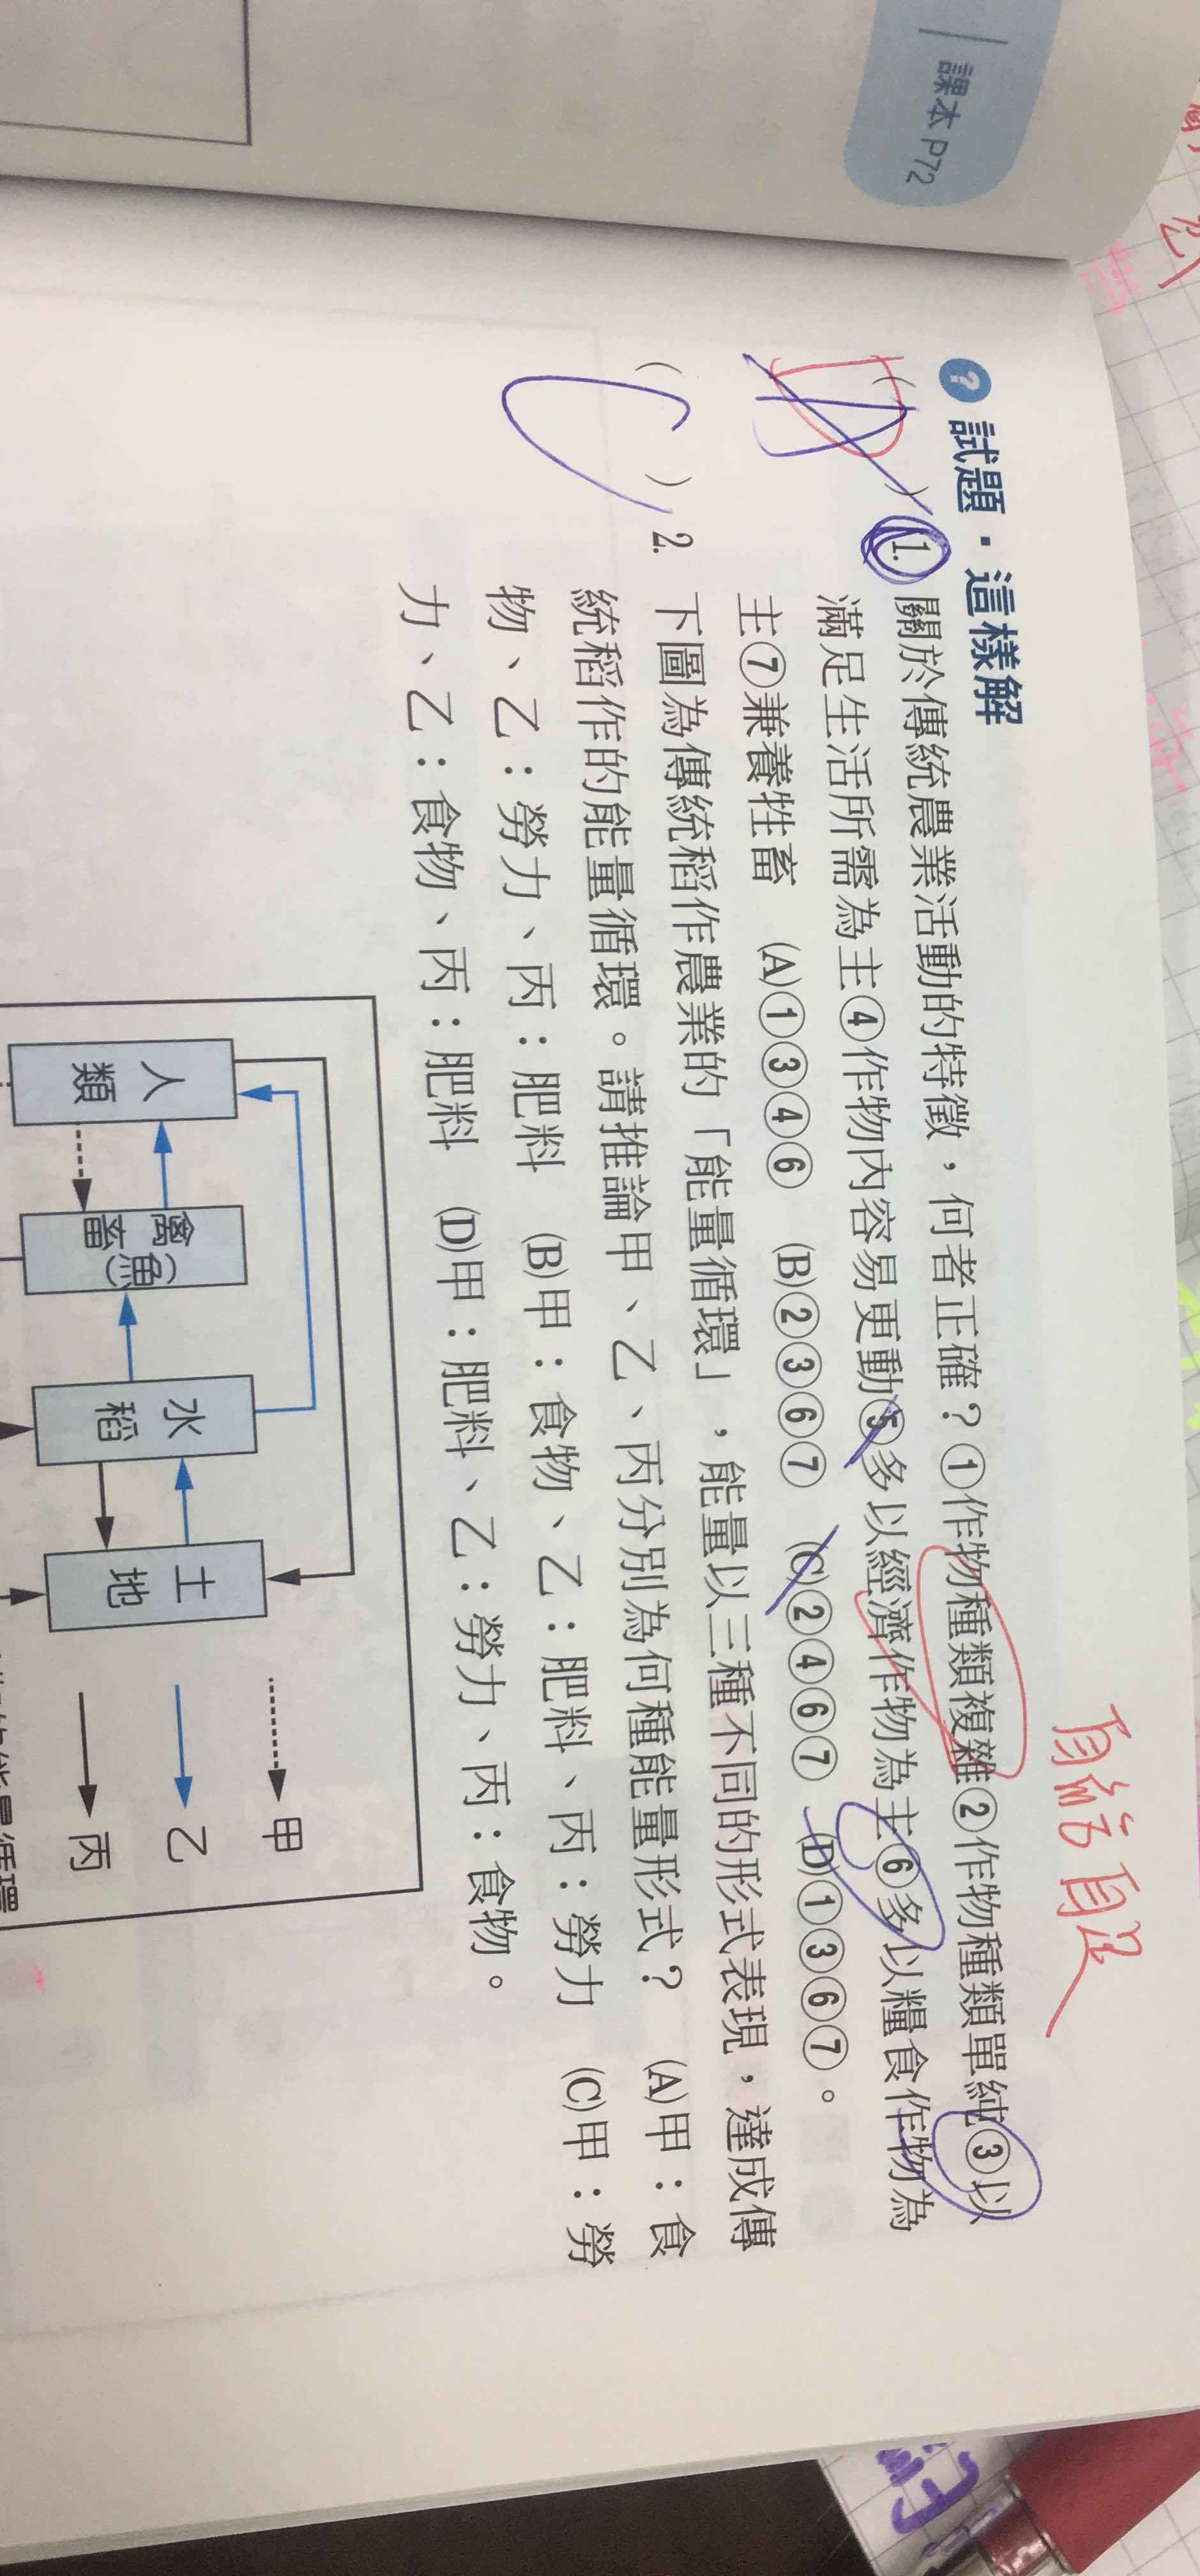 課本 P72
試題・這樣解
自給自足
( D )1. 關於傳統農業活動的特徵，何者正確？①作物種類複雜②作物種類單純③以
滿足生活所需為主④作物內容易更動⑤多以經濟作物為主⑥多以糧食作物為
主⑦兼養牲畜　(A)①③④⑥　(B)②③⑥⑦　(C)②④⑥⑦　(D)①③⑥⑦。
( C )2. 下圖為傳統稻作農業的「能量循環」，能量以三種不同的形式表現，達成傳
統稻作的能量循環。請推論甲、乙、丙分別為何種能量形式？　(A)甲：食
物、乙：勞力、丙：肥料　(B)甲：食物、乙：肥料、丙：勞力　(C)甲：勞
力、乙：食物、丙：肥料　(D)甲：肥料、乙：勞力、丙：食物。
人類
禽畜(魚)
水稻
土地
甲
乙
丙